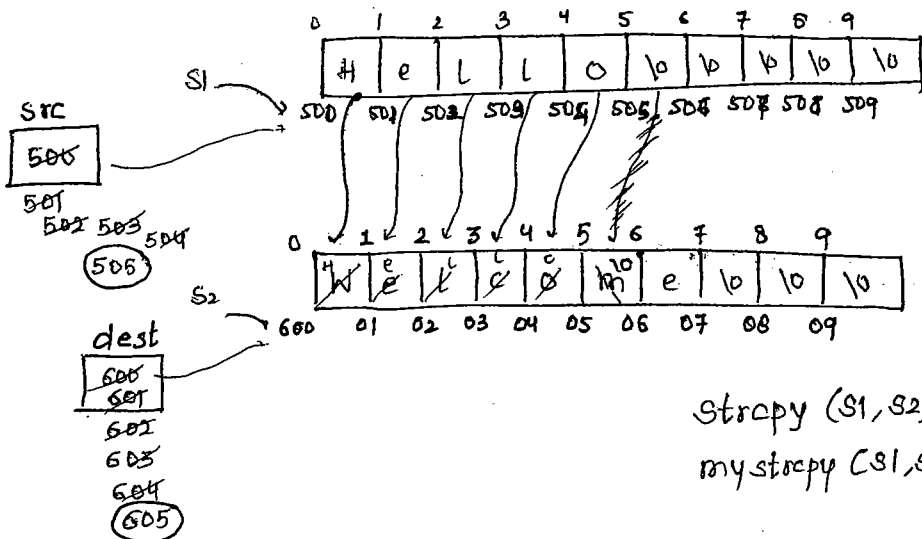 0 1 2 3 4 5 6 7 8 9
S1 H e l l o \0 \0 \0 \0 \0
500 501 502 503 504 505 506 507 508 509
src
500
501
502 503
504
505
0 1 2 3 4 5 6 7 8 9
H e l l o \0
S2 W e l c o m e \0 \0 \0
600 01 02 03 04 05 06 07 08 09
dest
600
601
602
603
604
605
strcpy (S1, S2
mystrcpy (S1, S